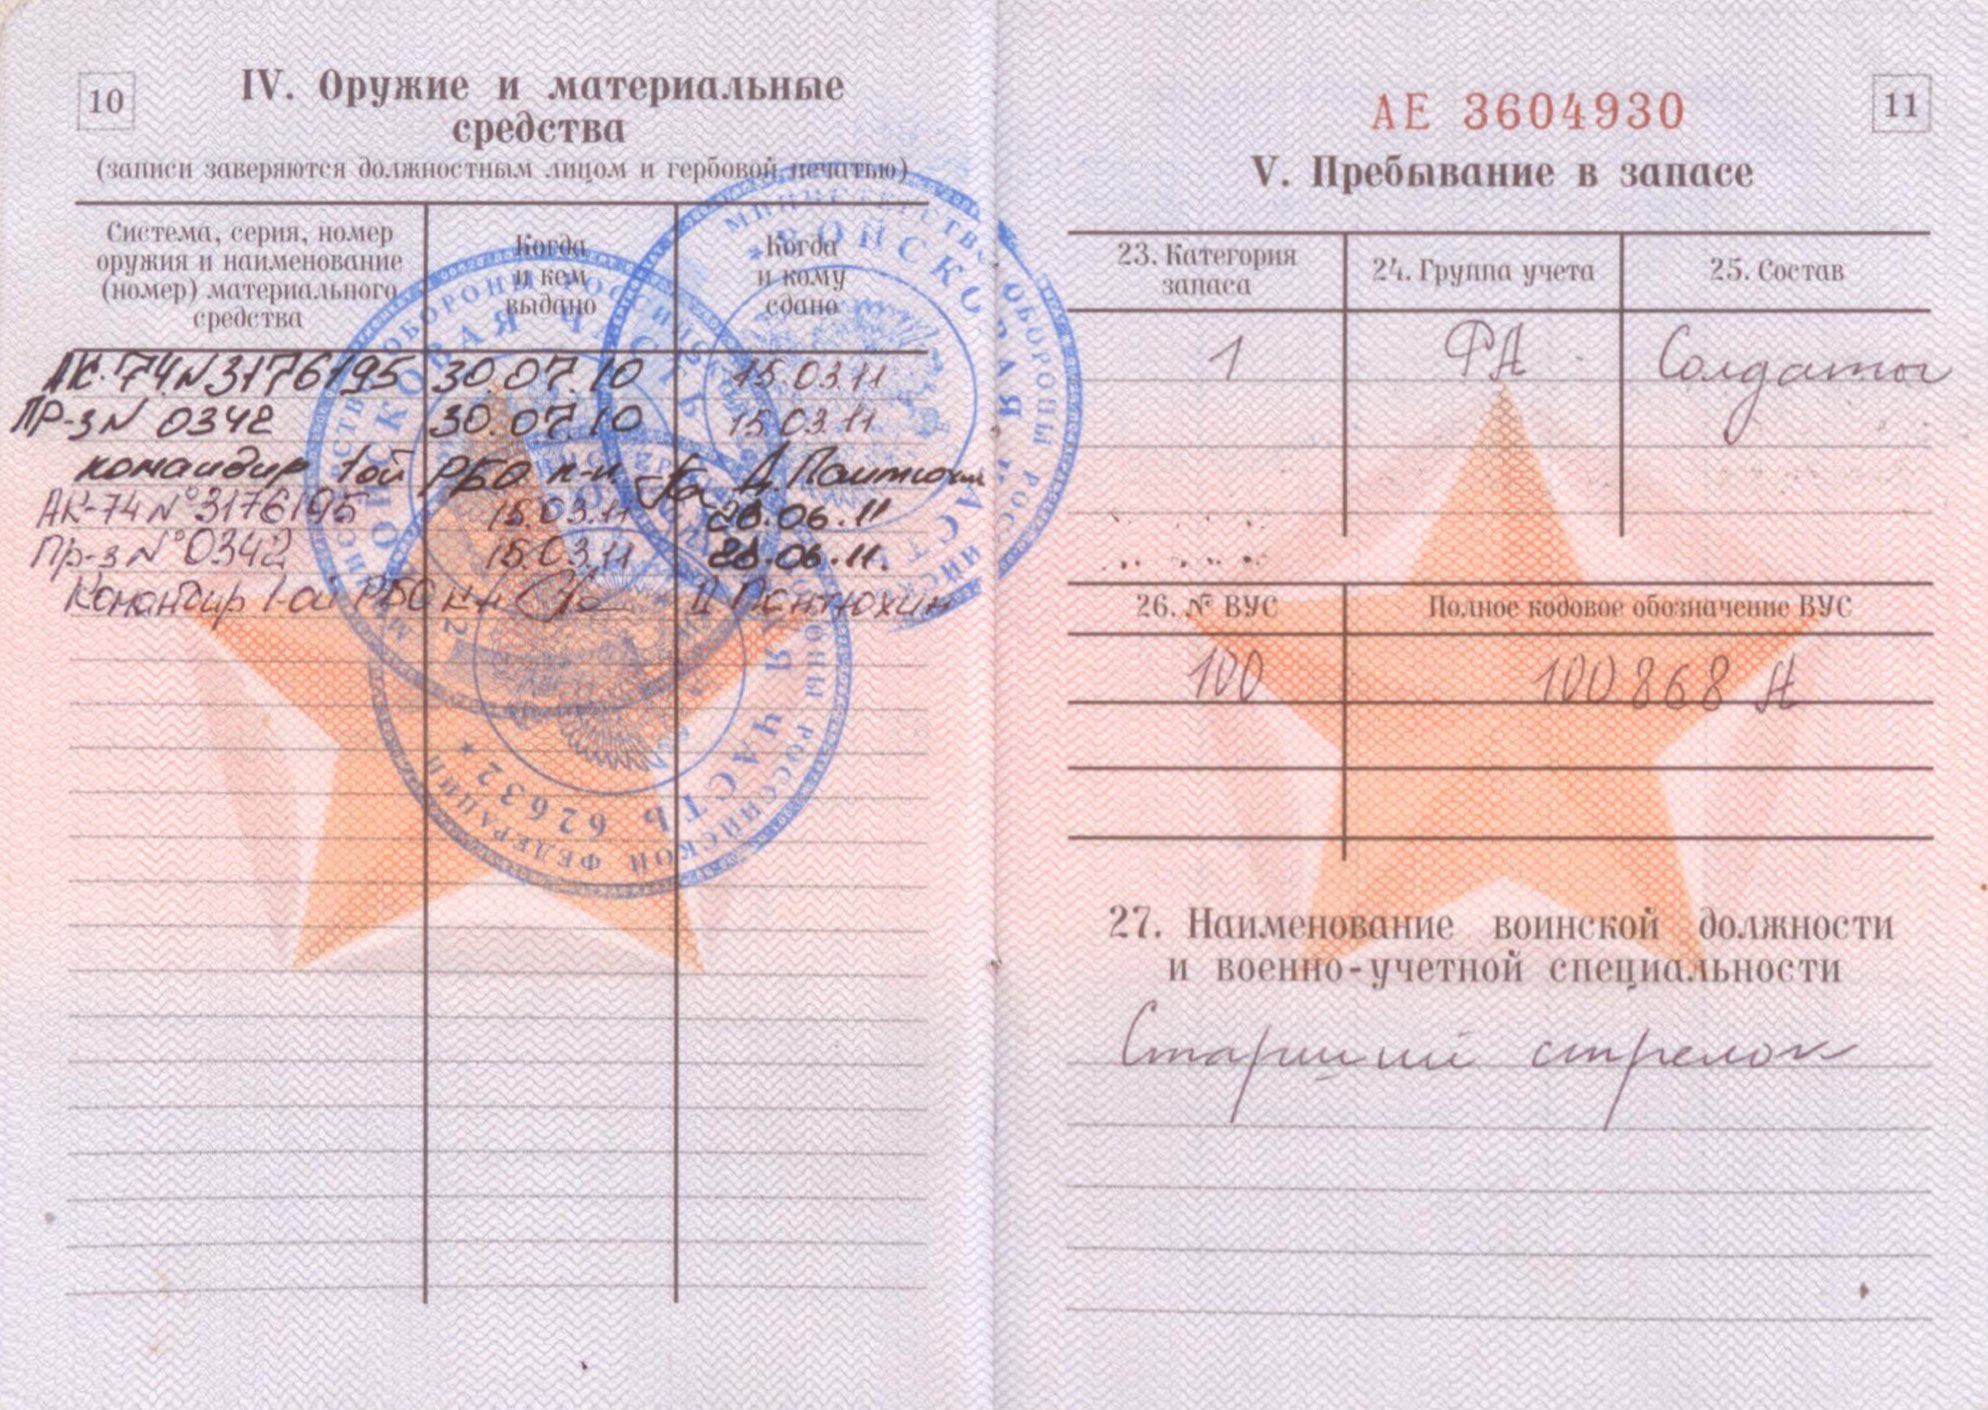 10
IV. Оружие и материальные
средства
(записи заверяются должностным лицом и гербовой печатью)
Система, серия, номер
оружия и наименование
(номер) материального
средства
Когда
и кем
выдано
Когда
и кому
сдано
АК-74 N 3176195 30.07.10 15.03.11
ПР-з N 0342 30.07.10 15.03.11
командир 1ой РБО к-н Д. Пантюхин
АК-74 N° 3176195 15.03.11 28.06.11
Пр-з N° 0342 15.03.11 28.06.11.
Командир 1-ой РБО к-н Д Пантюхин
МИНИСТЕРСТВО ОБОРОНЫ РОССИЙСКОЙ ФЕДЕРАЦИИ
ВОЙСКОВАЯ ЧАСТЬ
62632
11
АЕ 3604930
V. Пребывание в запасе
23. Категория
запаса
24. Группа учета
25. Состав
1 РА Солдаты
26. № ВУС
Полное кодовое обозначение ВУС
100 100868 А
27. Наименование воинской должности
и военно-учетной специальности
Старший стрелок